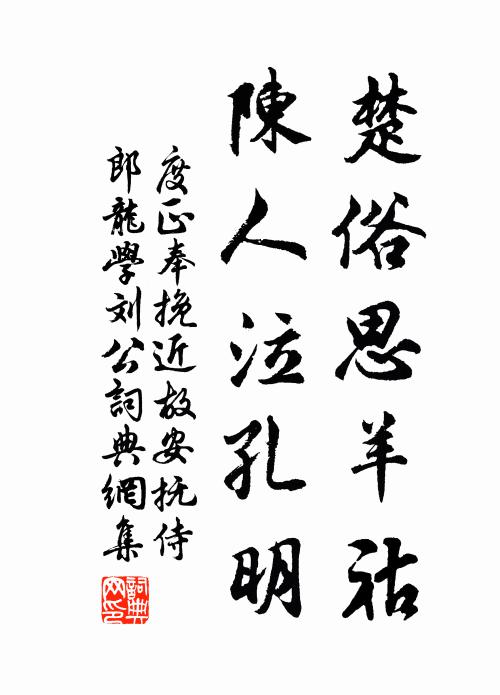 楚俗思羊祜
陳人泣孔明
度正奉挽近故安抚侍
郎龍學刘公詞典網集
詞典网印